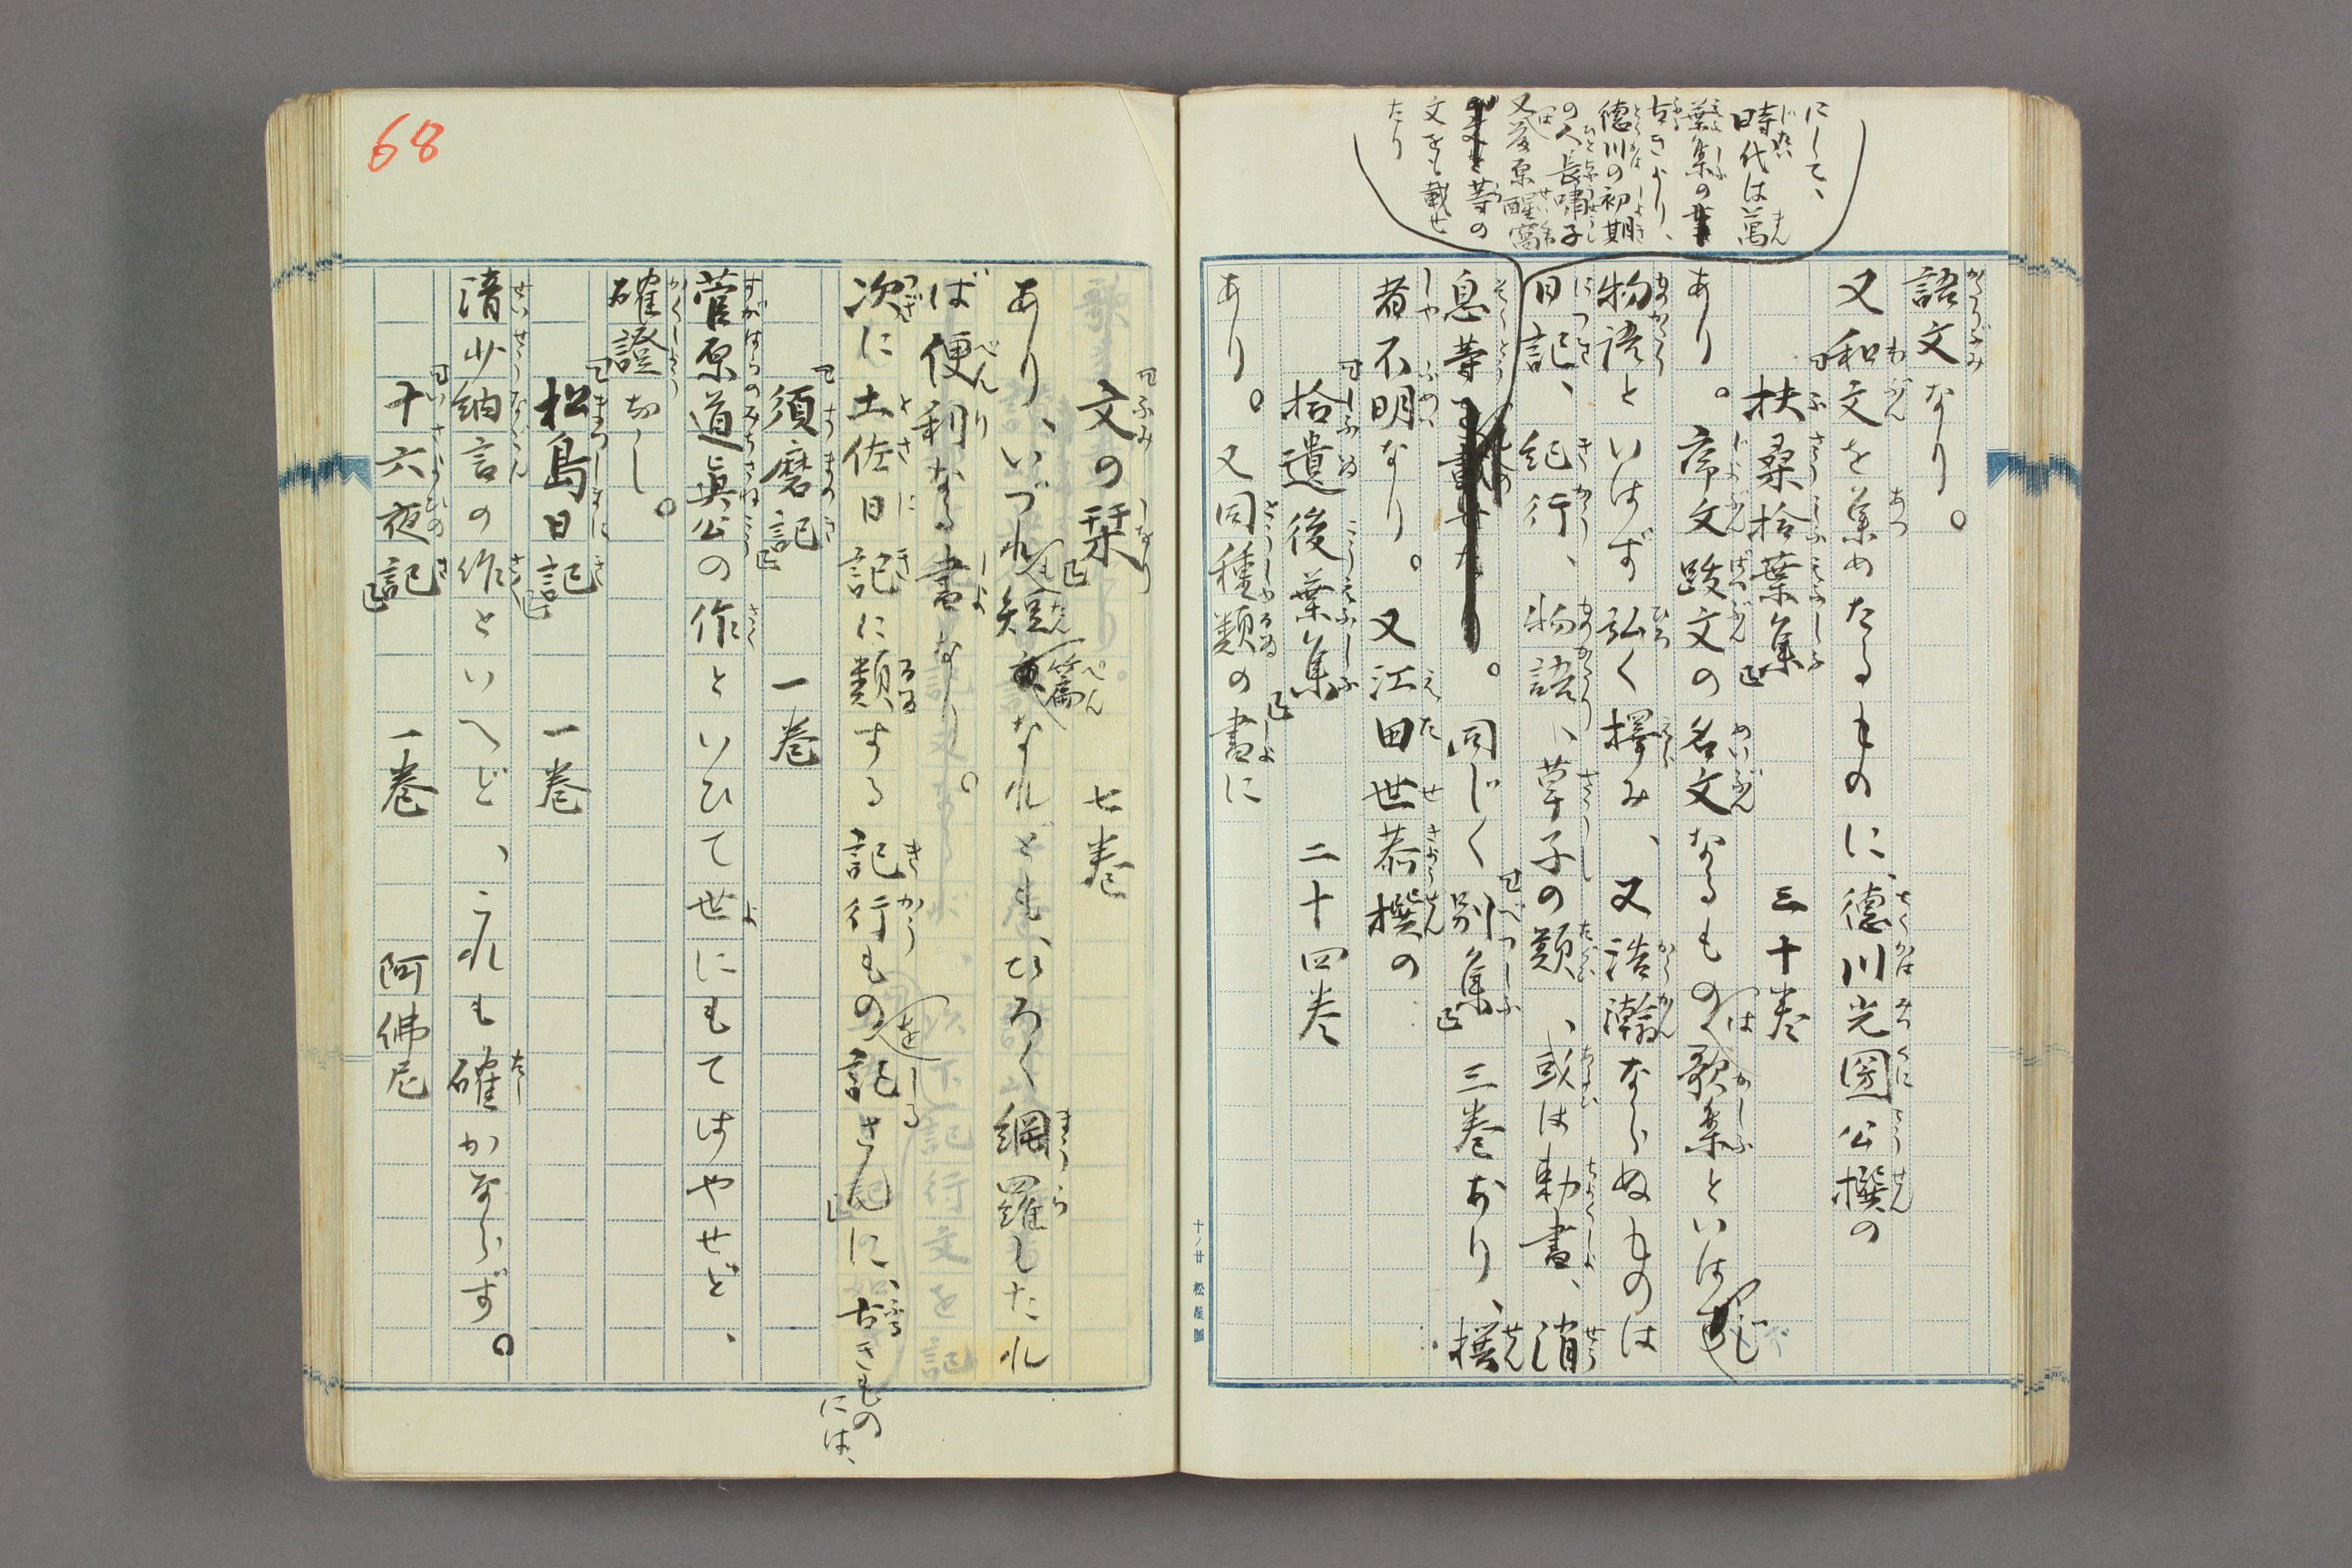 にして、
時代は萬
葉集の
古きより、
徳川の初期
の人長嘯子
又藤原惺窩
等の
文をも載せ
たり
語文なり。
又和文を集めたるものに、徳川光圀公撰の
『扶桑拾葉集』 三十巻
あり。序文跋文の名文なるものは歌集といはず
物語といはず弘く擇み、又浩瀚ならぬものは
日記、紀行、物語、草子の類、或は勅書、消
息等。同じく『別集』三巻あり、撰
者不明なり。又江田世恭撰の
『拾遺後葉集』 二十四巻
あり。又同種類の書に
十ノ廿 松屋製
68
『文の栞』 七巻
あり、いづれも短篇なれども、ひろく網羅したれ
ば便利なる書なり。
次に土佐日記に類する記行ものを記さんに、古きもの
には、
『須磨記』 一巻
菅原道真公の作といひて世にもてはやせど、
確證なし。
『松島日記』 一巻
清少納言の作といへど、これも確かならず。
『十六夜記』 一巻 阿佛尼